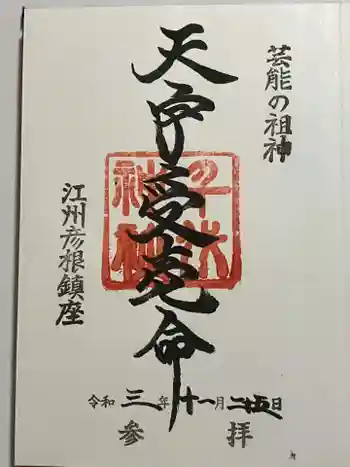 芸能の祖神
天宇受売命
江州彦根鎮座
令和三年十一月二十五日
参拝